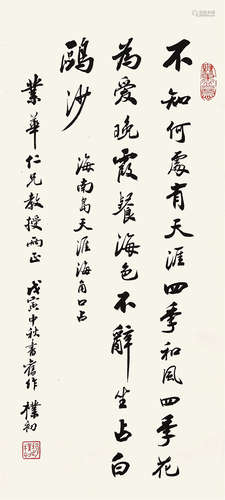 不知何處有天涯四季和風四季花
為愛晚霞餐海色不辭坐占白
鷗沙
海南島天涯海角口占
業華仁兄教授兩正
戊寅中秋書舊作 樸初